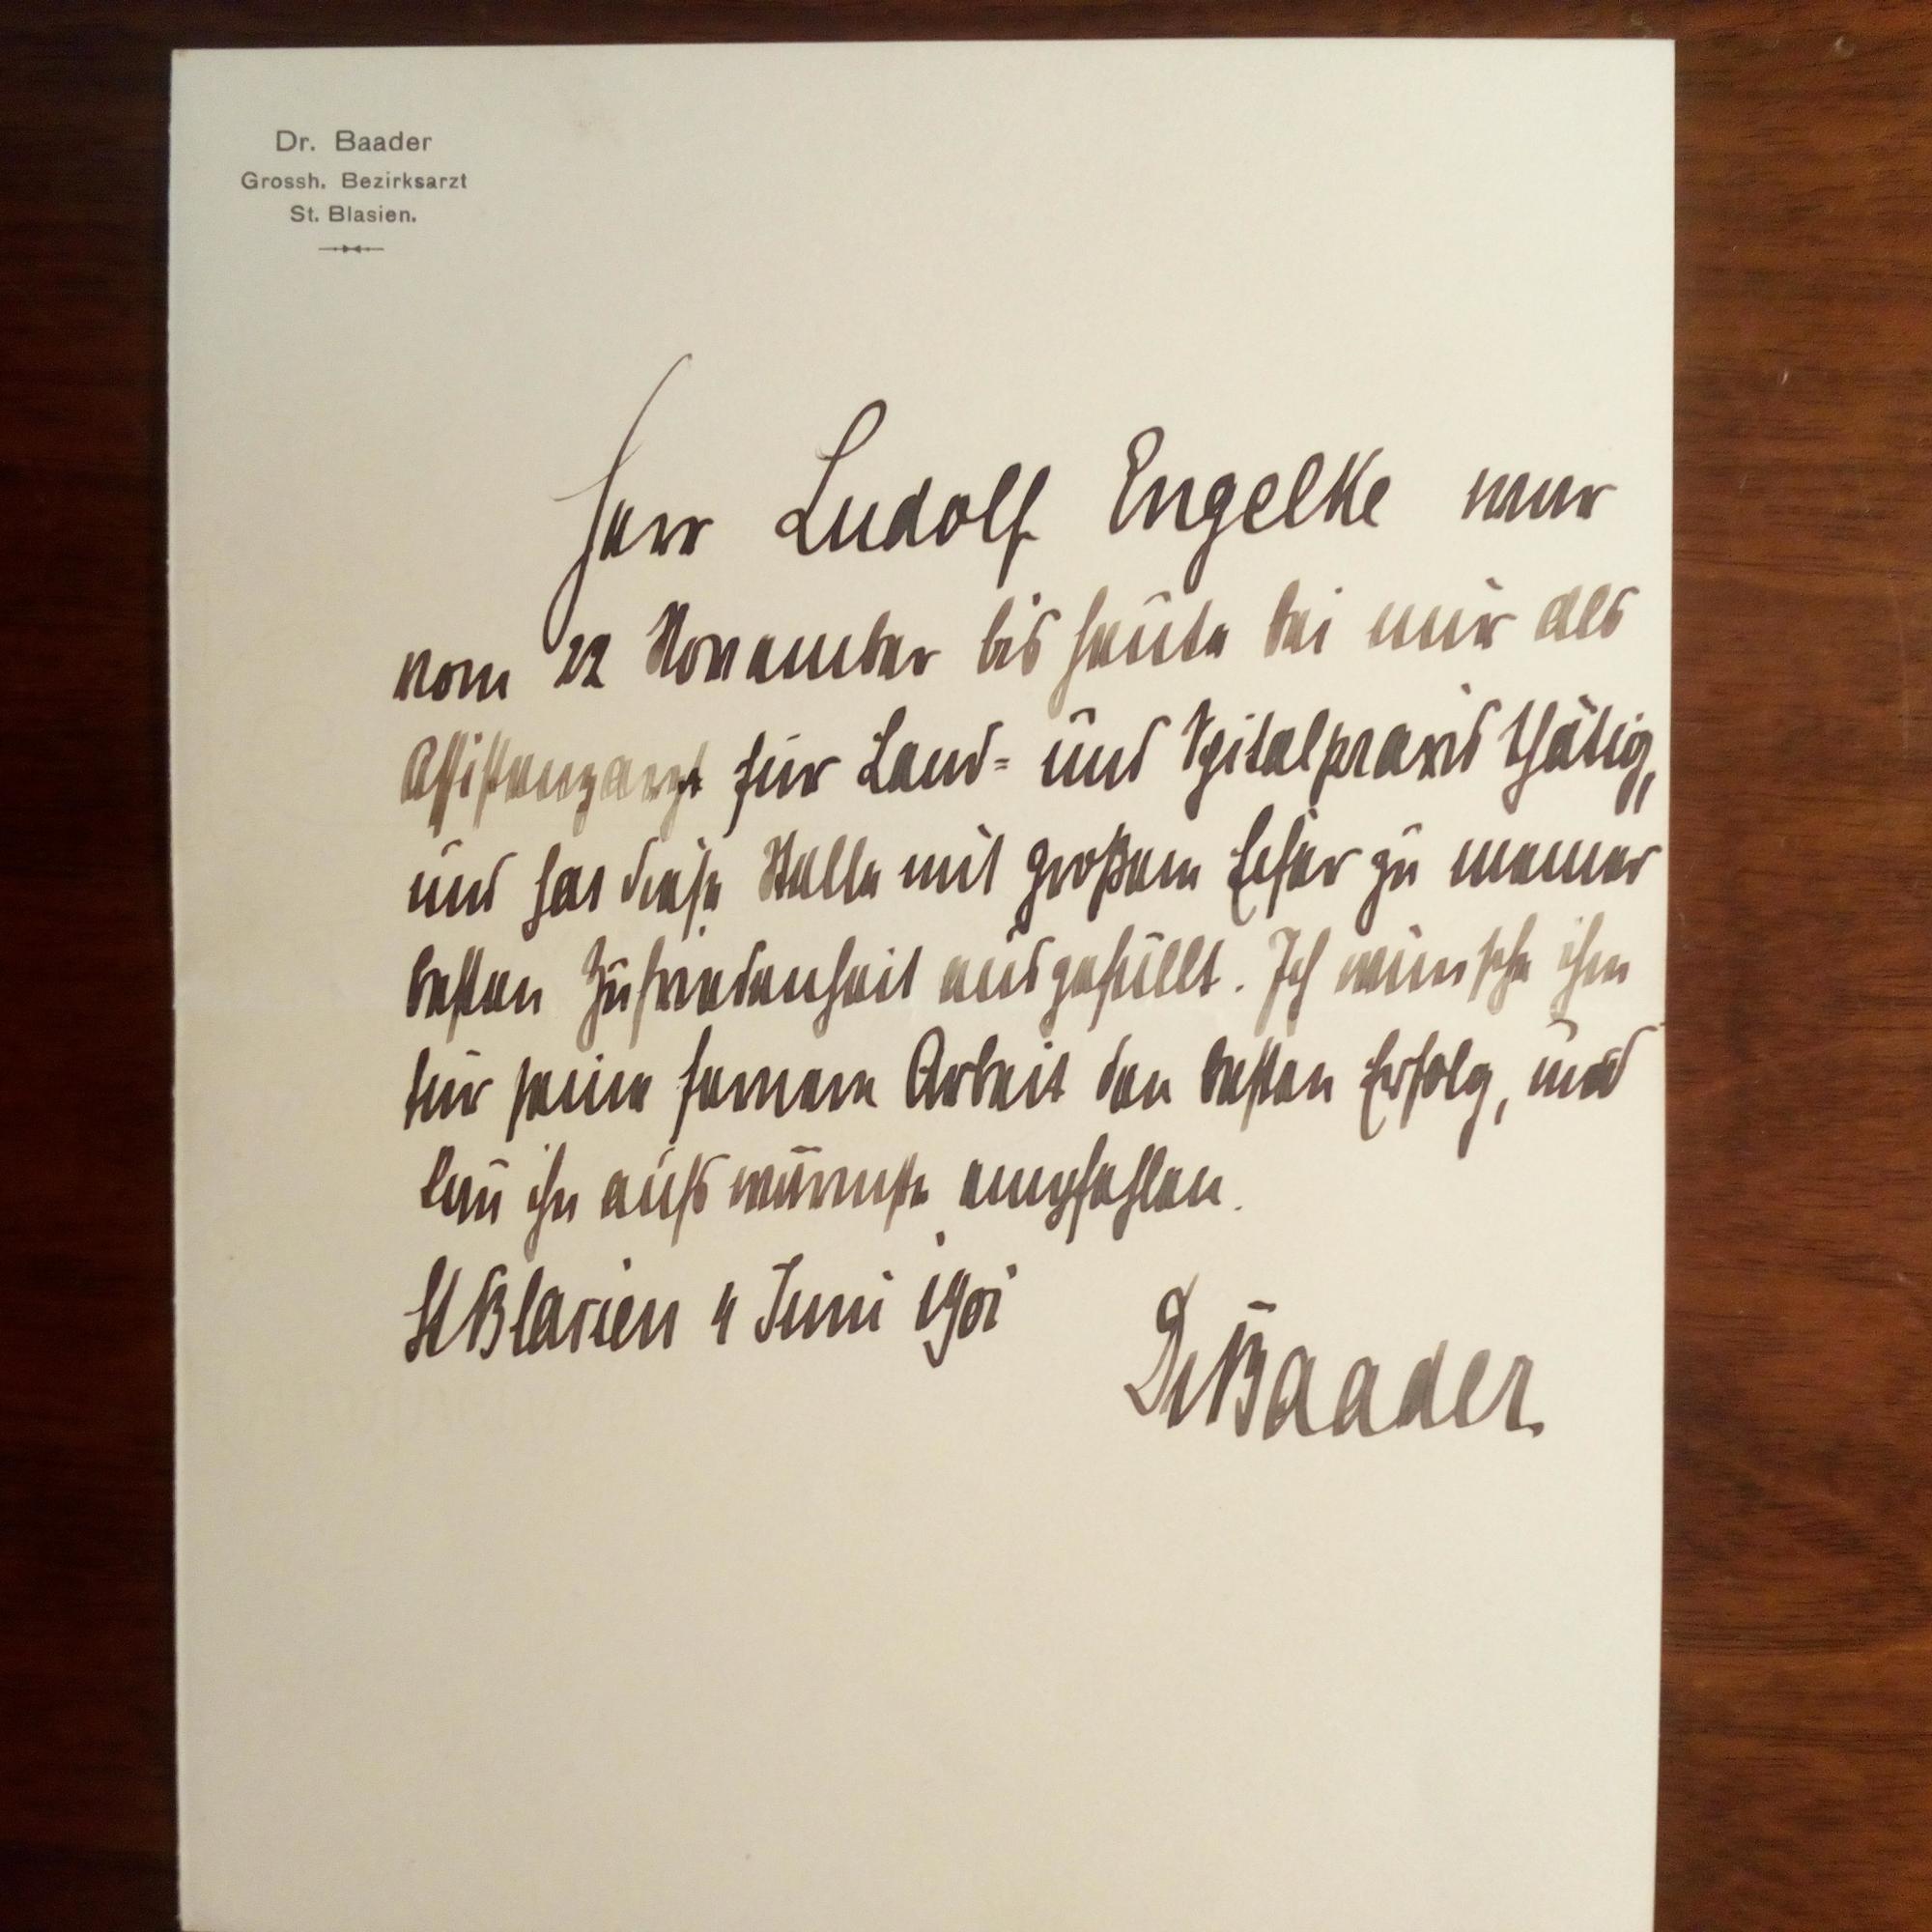 Dr. Baader
Grossh. Bezirksarzt
St. Blasien.
Herr Ludolf Engelke war
vom 22 November bis heute bei mir als
Assistenzarzt für Land- und Spitalpraxis thätig,
und hat diese Stelle mit großem Eifer zu meiner
besten Zufriedenheit ausgefüllt. Ich wünsche ihm
für seine fernere Arbeit den besten Erfolg, und
kann ihn aufs wärmste empfehlen.
St Blasien 4 Juni 1901
Dr Baader